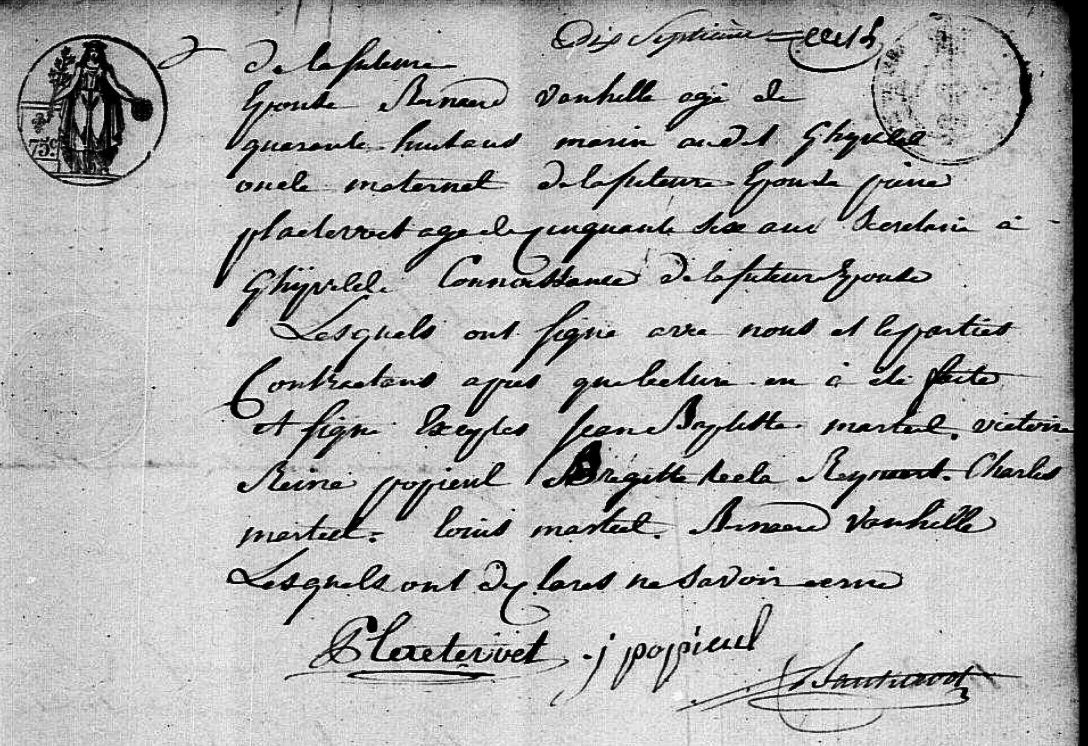 Dix Septième
de la future
Epouse Bernard Vanhille agé de
quarante huit ans marin audit Ghyvelde
oncle maternel de la future Epouse pierre
plaetevoet agé de cinquante six ans Secretaire à
Ghÿvelde Connoissance de la future Epouse
Lesquels ont signe avec nous et les parties
Contractans apres que lecture en à été faite
et signe Exceptes jean Baptiste marteel. victoire
Reine popieul Brigitte Reynaert. Charles
marteel. louis marteel. Bernard Vanhille
Lesquels ont declares ne savoir ecrire
Plaetevoet j popieul
75c